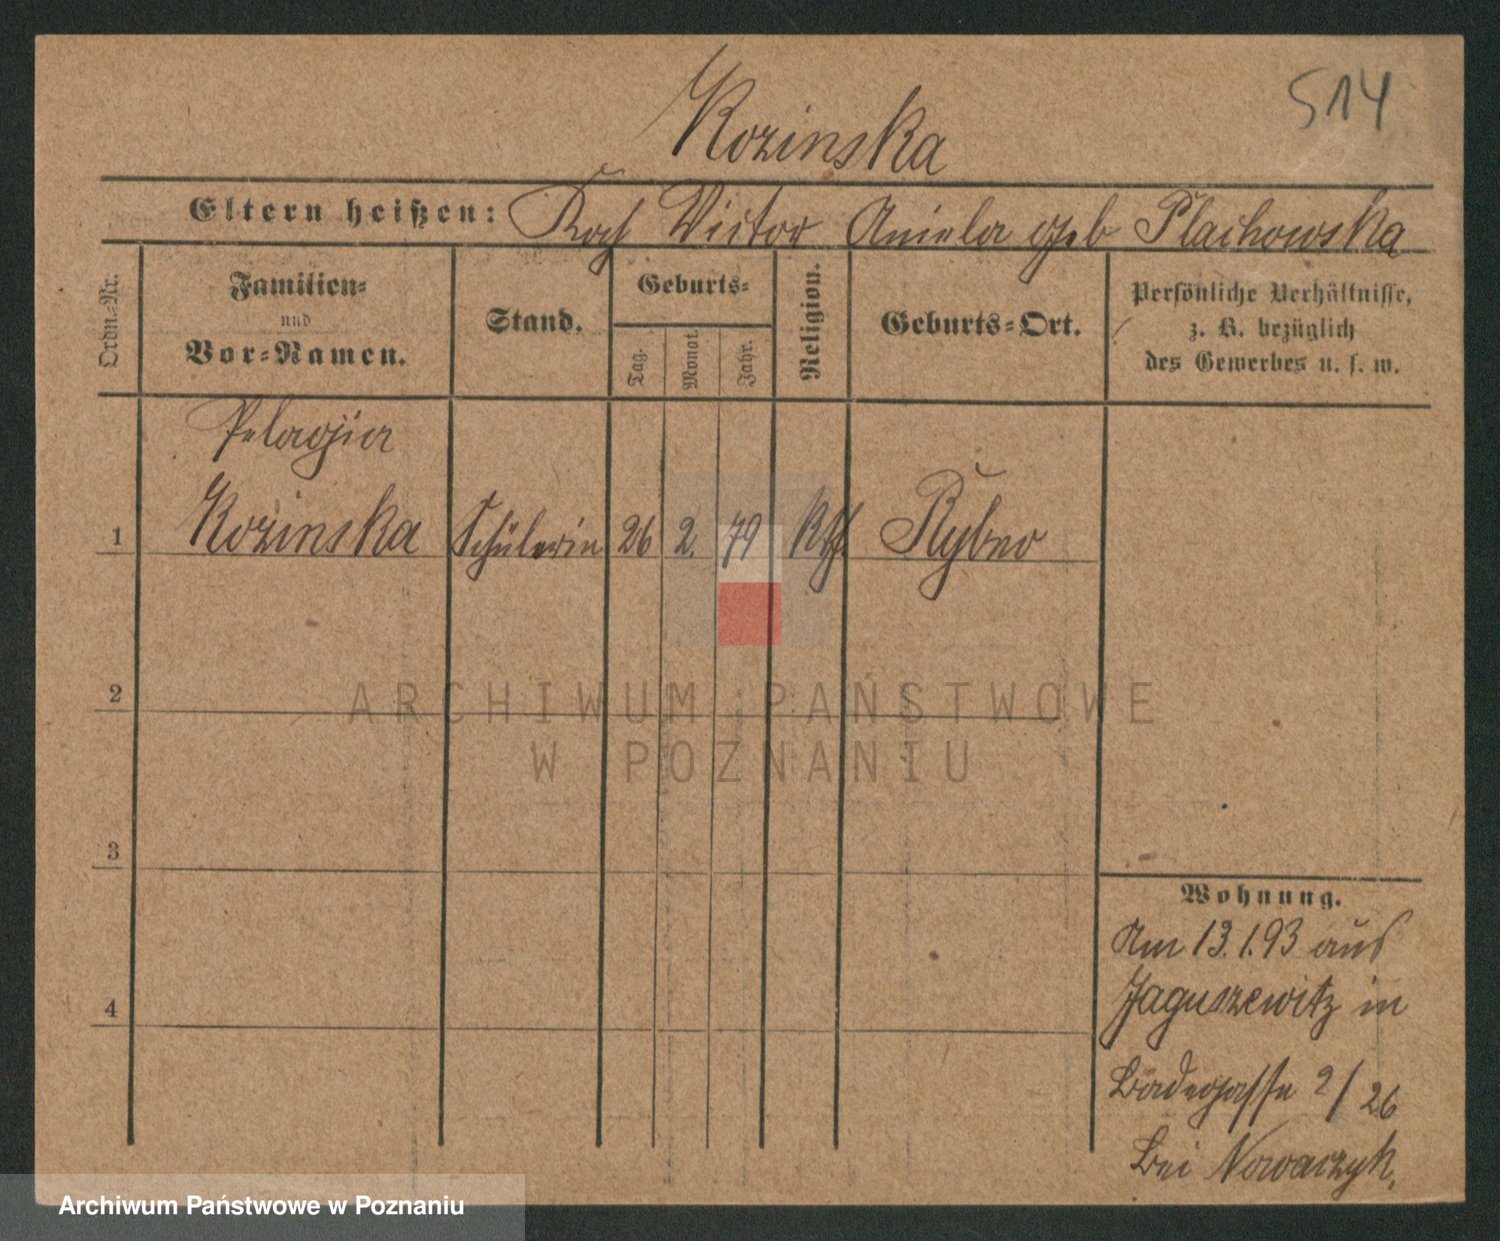 514
Kozinska
Eltern heißen: Koch Victor Aniela geb Plachowska
Ordn.-Nr.
Familien-
und
Vor-Namen.
Stand.
Geburts-
Tag.
Monat.
Jahr.
Religion.
Geburts-Ort.
Persönliche Verhältnisse,
z. B. bezüglich
des Gewerbes u. s. w.
Pelagia
1 Kozinska Schülerin 26 2. 79 Kth.
2
3
4
Wohnung.
Am 13.1.93 aus
Jaguszewitz in
Badegasse 2/26
bei Nowaczyk.
ARCHIWUM PAŃSTWOWE
W POZNANIU
Archiwum Państwowe w Poznaniu